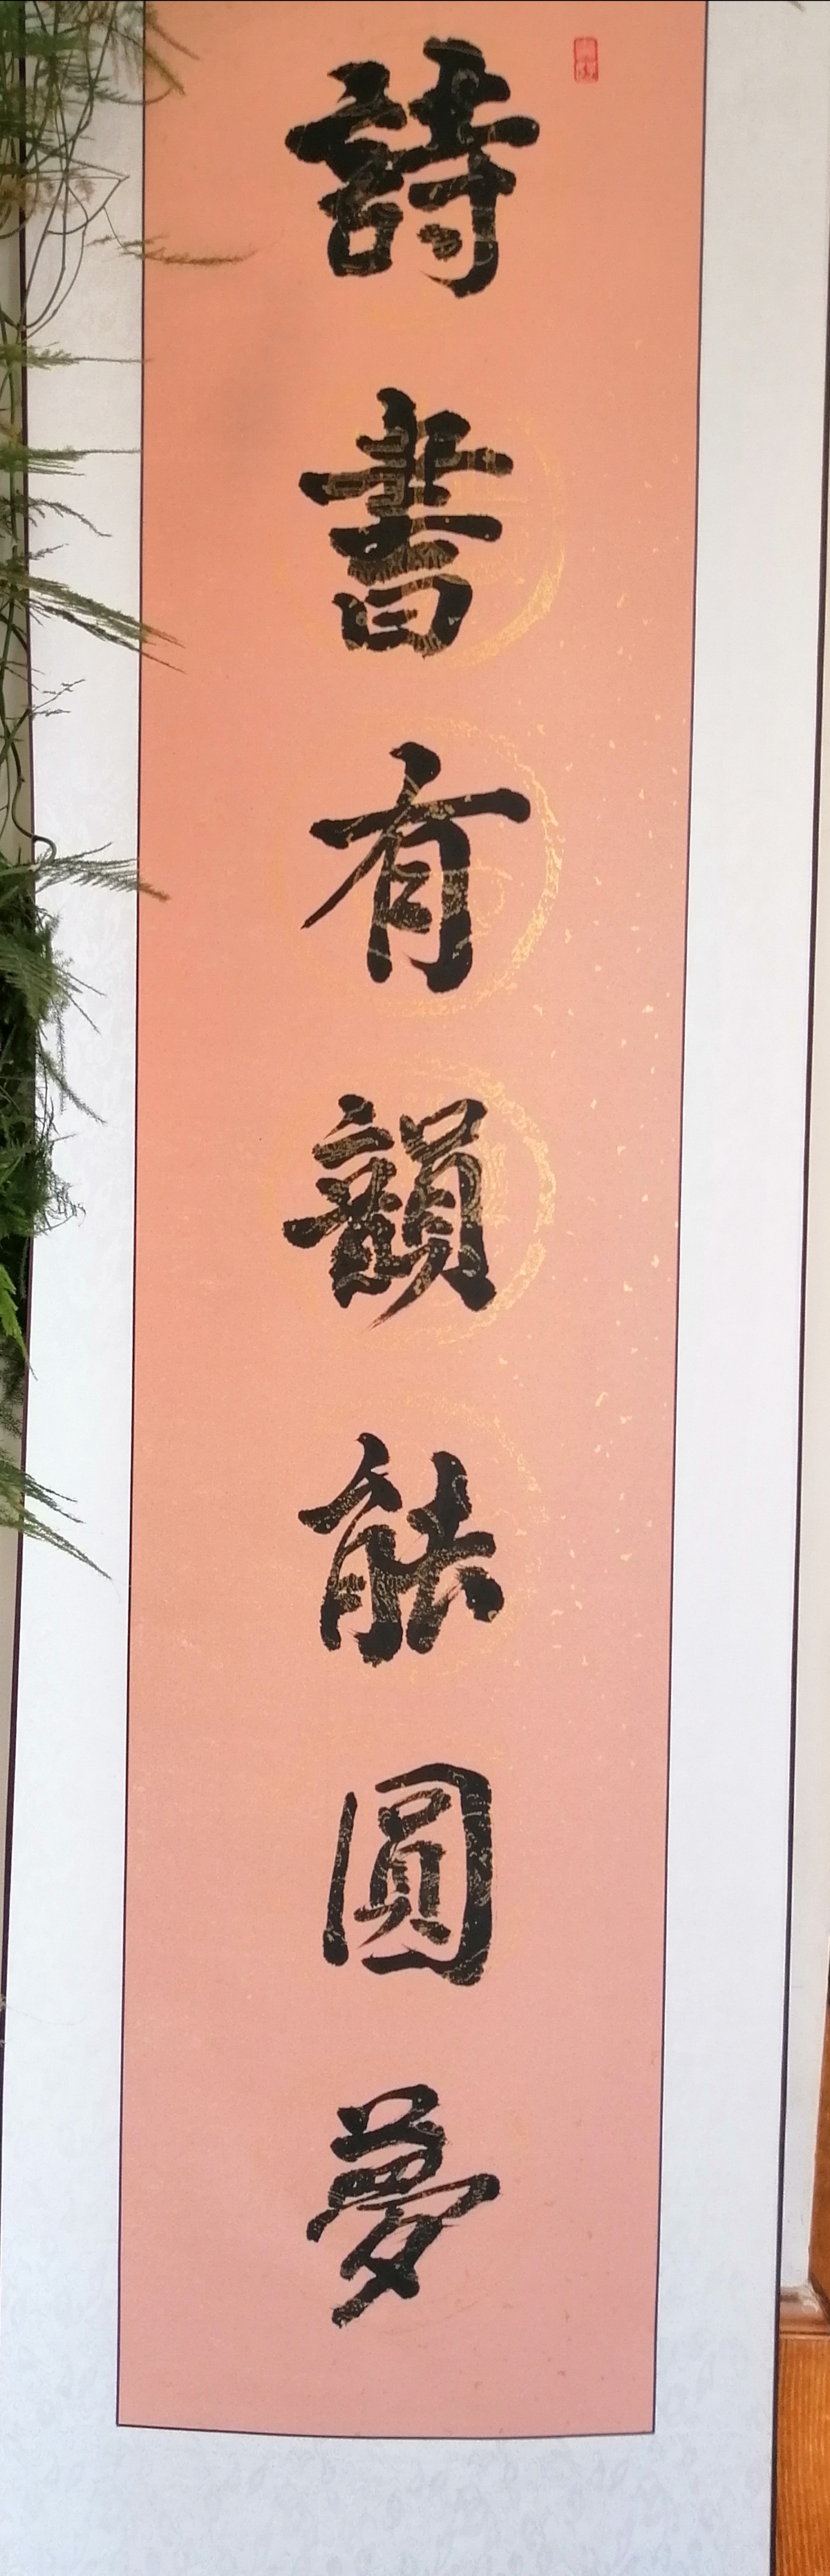 詩書有韻能圓夢